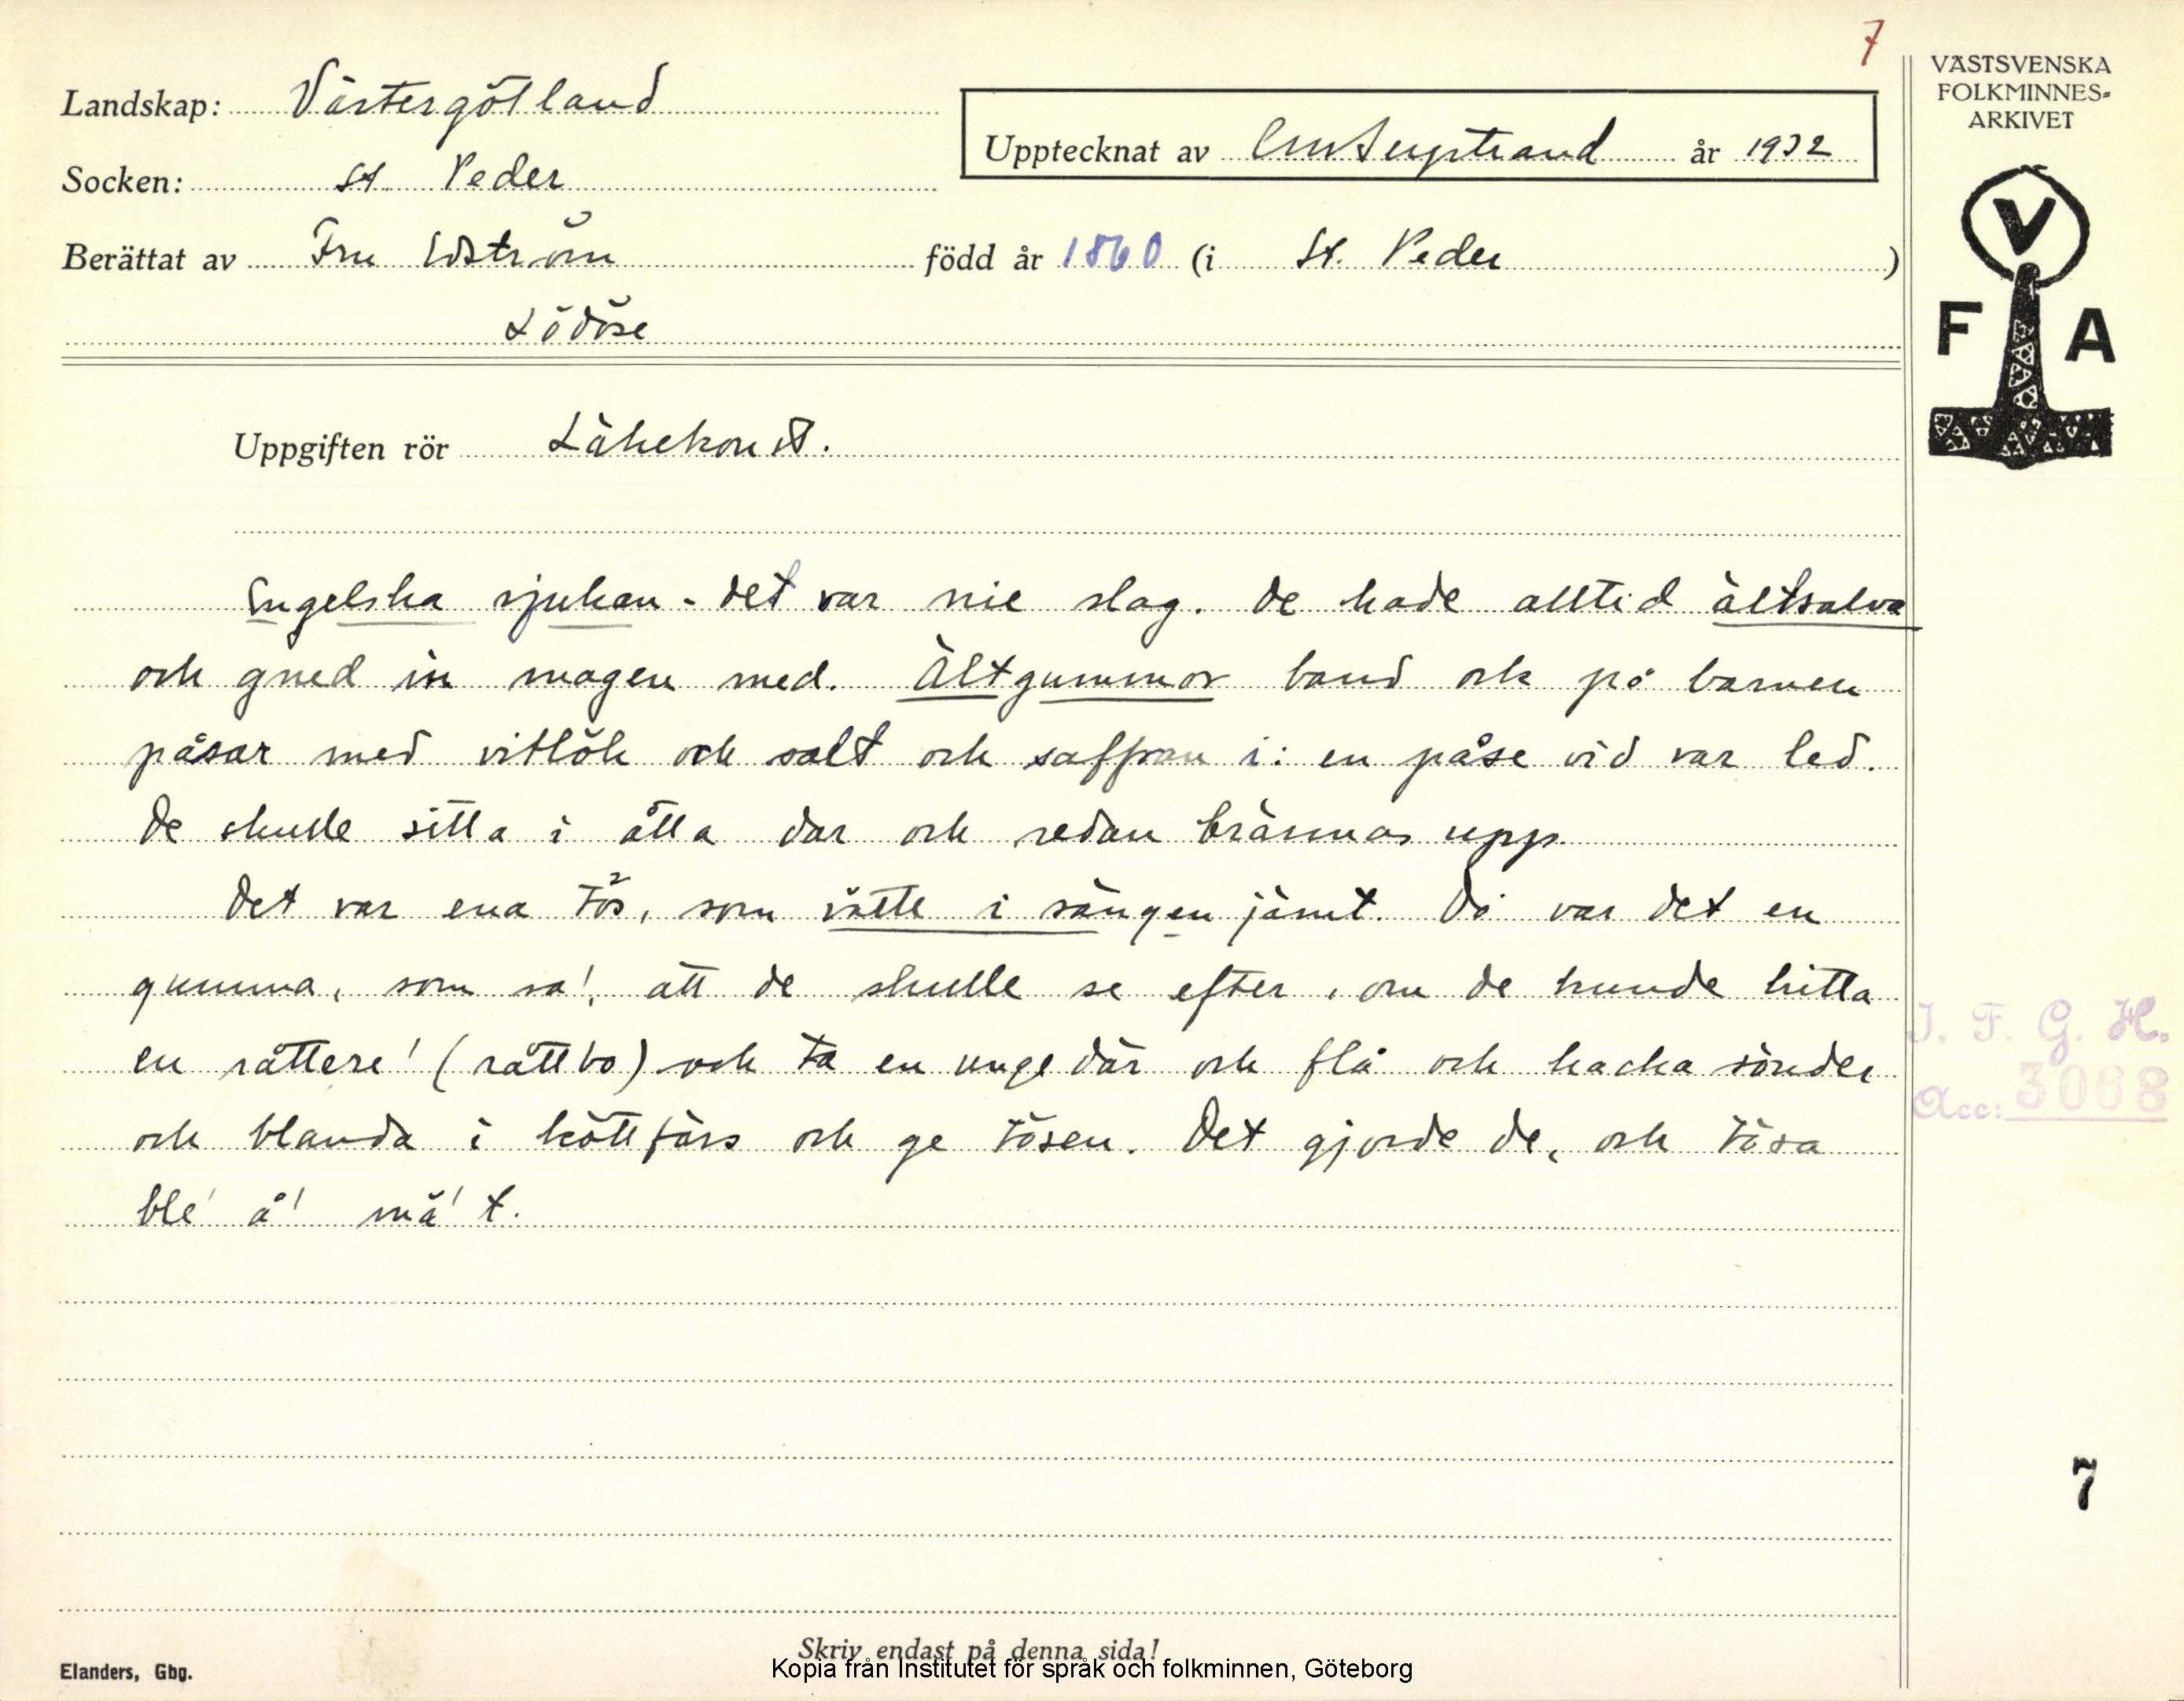 7
VÄSTSVENSKA
FOLKMINNES-
ARKIVET
Landskap: Västergötland
Upptecknat av år 1932
Socken: St. Peder
Berättat av Fru Edström född år 1860 (i St. Peder)
Lödöse
V
F A
Uppgiften rör Läkekonst.
Engelska sjukan - det var nie slag. De hade alltid ältsalva
och gned in magen med. Ältgummor band ock på barnen
påsar med vitlök och salt och saffran i: en påse vid var led.
De skulle sitta i åtta dar och sedan brännas upp.
Det var ena tös, som vätte i sängen jämt. Då var det en
gumma, som sa', att de skulle se efter, om de kunde hitta
en råttere' (råttbo) och ta en unge där och flå och hacka sönder
och blanda i köttfärs och ge tösen. Det gjorde de, och tösa
ble' å' mä' t.
I. F. G. H.
Acc: 3068
7
Skriv endast på denna sida!
Elanders, Gbg.
Kopia från Institutet för språk och folkminnen, Göteborg